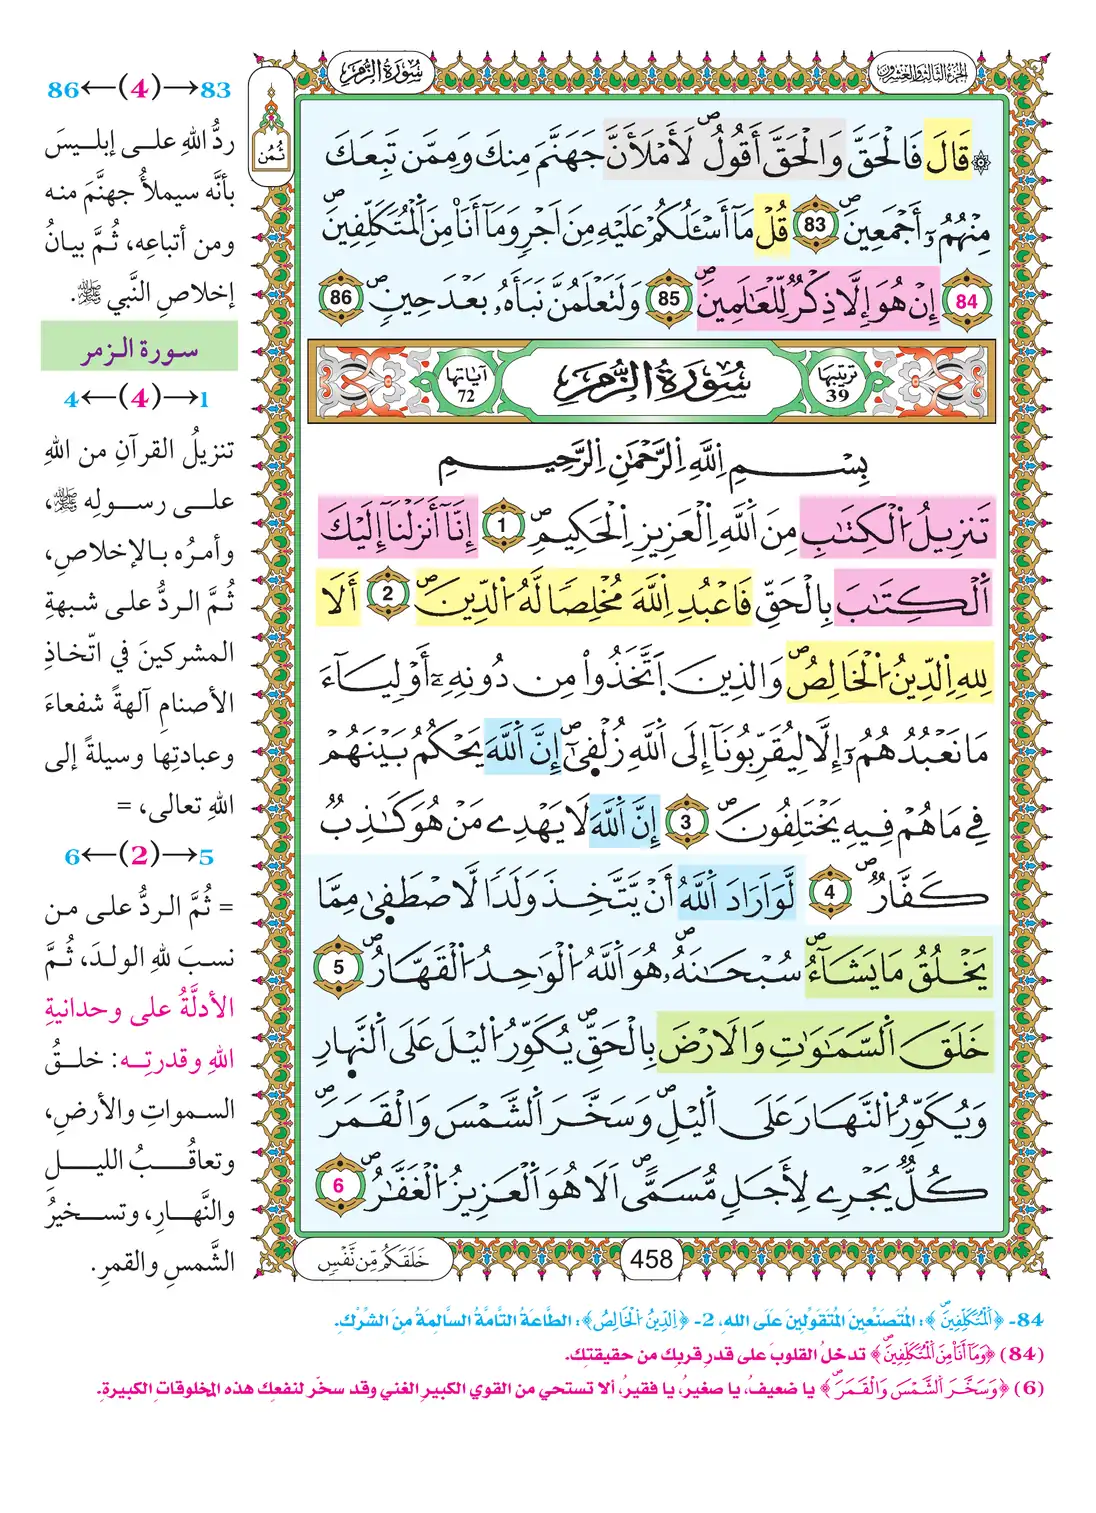 الجزء الثالث والعشرون
سُورَةُ الزُّمَرِ
ثُمُن
۞ قَالَ فَالْحَقَّ وَالْحَقَّ أَقُولُ لَأَمْلَأَنَّ جَهَنَّمَ مِنكَ وَمِمَّن تَبِعَكَ
مِنْهُمُۥٓ أَجْمَعِينَ 83 قُلْ مَآ أَسْـَٔلُكُمْ عَلَيْهِ مِنَ اَجْرٍ وَمَآ أَنَا۠ مِنَ اَلْمُتَكَلِّفِينَ
84 إِنْ هُوَ إِلَّا ذِكْرٌ لِّلْعَٰلَمِينَ 85 وَلَتَعْلَمُنَّ نَبَأَهُۥ بَعْدَ حِينٍ 86
ترتيبها 39
سُورَةُ الزُّمَرِ
آياتها 72
بِسْمِ اِللَّهِ اِلرَّحْمَٰنِ اِلرَّحِيمِ
تَنزِيلُ اُلْكِتَٰبِ مِنَ اَللَّهِ اِلْعَزِيزِ اِلْحَكِيمِ 1 إِنَّآ أَنزَلْنَآ إِلَيْكَ
اَلْكِتَٰبَ بِالْحَقِّ فَاعْبُدِ اِللَّهَ مُخْلِصًا لَّهُ اُلدِّينَ 2 أَلَا
لِلهِ اِلدِّينُ اُلْخَالِصُ وَالذِينَ اَتَّخَذُوا۟ مِن دُونِهِۦٓ أَوْلِيَآءَ
مَا نَعْبُدُهُمُۥٓ إِلَّا لِيُقَرِّبُونَآ إِلَى اَللَّهِ زُلْفَىٰٓ إِنَّ اَللَّهَ يَحْكُمُ بَيْنَهُمْ
فِي مَا هُمْ فِيهِ يَخْتَلِفُونَ 3 إِنَّ اَللَّهَ لَا يَهْدِے مَنْ هُوَ كَٰذِبٌ
كَفَّارٌ 4 لَّوَ اَرَادَ اَللَّهُ أَنْ يَّتَّخِذَ وَلَدًا لَّاصْطَفَىٰ مِمَّا
يَخْلُقُ مَا يَشَآءُ سُبْحَٰنَهُۥ هُوَ اَللَّهُ اُلْوَٰحِدُ اُلْقَهَّارُ 5
خَلَقَ اَلسَّمَٰوَٰتِ وَالَارْضَ بِالْحَقِّ يُكَوِّرُ اُليْلَ عَلَى اَلنَّهارِ
وَيُكَوِّرُ اُلنَّهَارَ عَلَى اَليْلِ وَسَخَّرَ اَلشَّمْسَ وَالْقَمَرَ
كُلٌّ يَجْرِے لِأَجَلٍ مُّسَمًّى اَلَا هُوَ اَلْعَزِيزُ اُلْغَفَّٰرُ 6
458
خَلَقَكُم مِّن نَّفْسٍ
83→(4)←86
ردُّ اللهِ على إبليسَ
بأنَّه سيملأُ جهنَّمَ منه
ومن أتباعِه، ثُمَّ بيانُ
إخلاصِ النَّبي ﷺ.
سورة الزمر
1→(4)←4
تنزيلُ القرآنِ من اللهِ
على رسولِه ﷺ،
وأمرُه بالإخلاصِ،
ثُمَّ الردُّ على شبهةِ
المشركينَ في اتّخاذِ
الأصنامِ آلهةً شفعاءَ
وعبادتِها وسيلةً إلى
اللهِ تعالى، =
5→(2)←6
= ثُمَّ الردُّ على من
نسبَ للهِ الولدَ، ثُمَّ
الأدلَّةُ على وحدانيةِ
اللهِ وقدرتِه: خلقُ
السمواتِ والأرضِ،
وتعاقُبُ الليلِ
والنَّهارِ، وتسخيرُ
الشَّمسِ والقمرِ.
84- ﴿اَلْمُتَكَلِّفِينَ﴾: المُتَصَنِّعِينَ المُتَقَوِّلِينَ عَلَى اللهِ، 2- ﴿اِلدِّينُ اُلْخَالِصُ﴾: الطَّاعَةُ التَّامَّةُ السَّالِمَةُ مِنَ الشِّرْكِ.
(84) ﴿وَمَآ أَنَا۠ مِنَ اَلْمُتَكَلِّفِينَ﴾ تدخلُ القلوبَ على قدرِ قربِك من حقيقتِك.
(6) ﴿وَسَخَّرَ اَلشَّمْسَ وَالْقَمَرَ﴾ يا ضعيفُ، يا صغيرُ، يا فقيرُ، ألا تستحي من القوي الكبيرِ الغني وقد سخَّر لنفعِك هذه المخلوقاتِ الكبيرةِ.